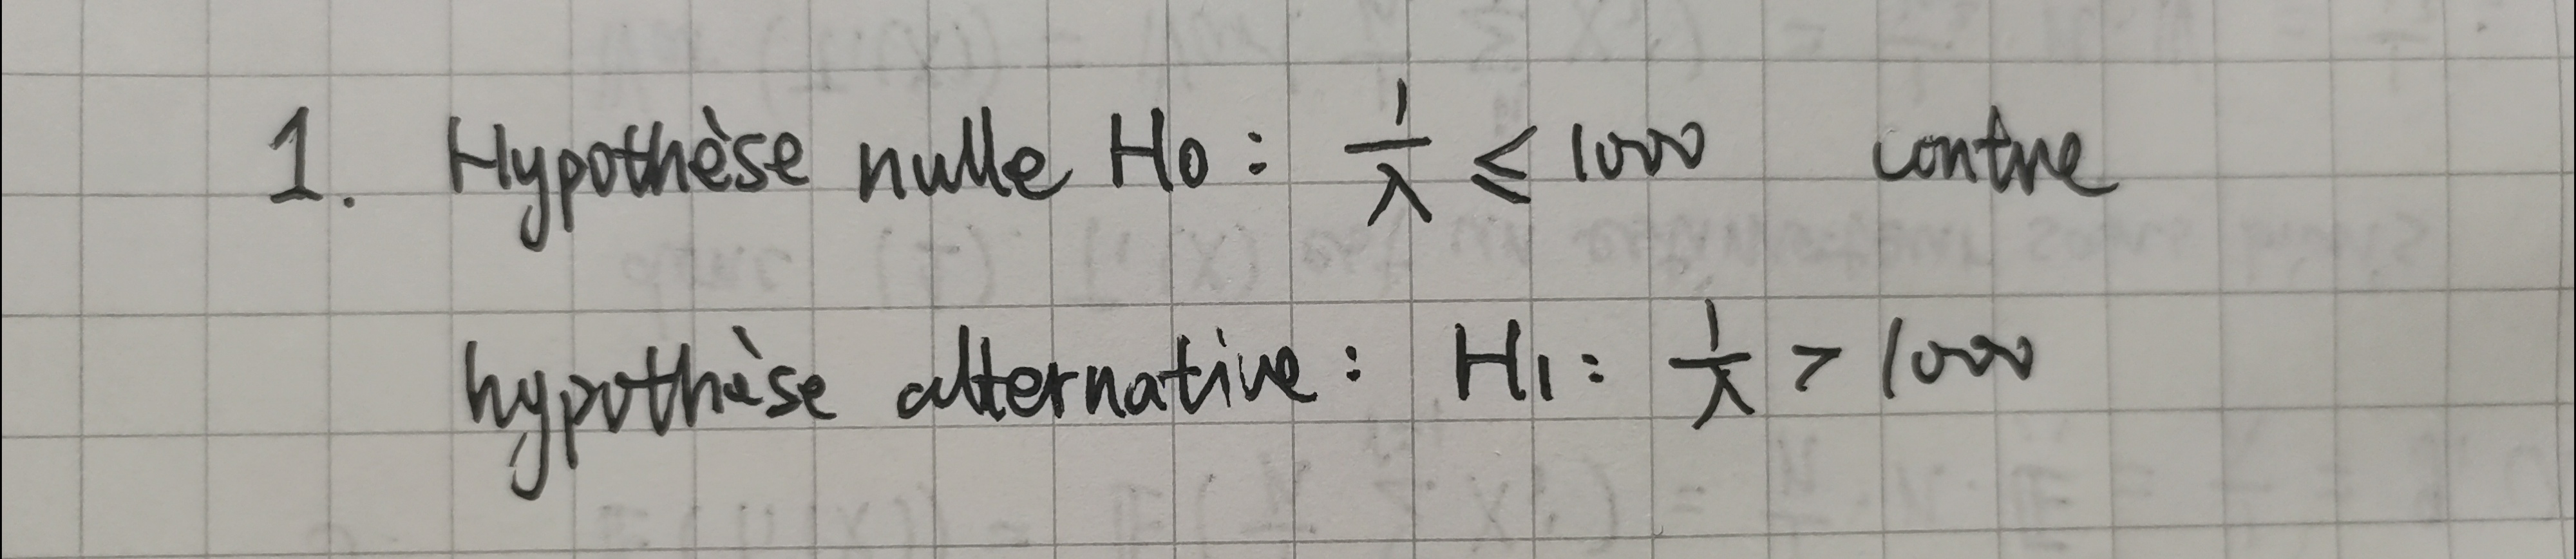 1. Hypothèse nulle H0 : 1/λ ≤ 1000 contre
hypothèse alternative : H1 : 1/λ > 1000